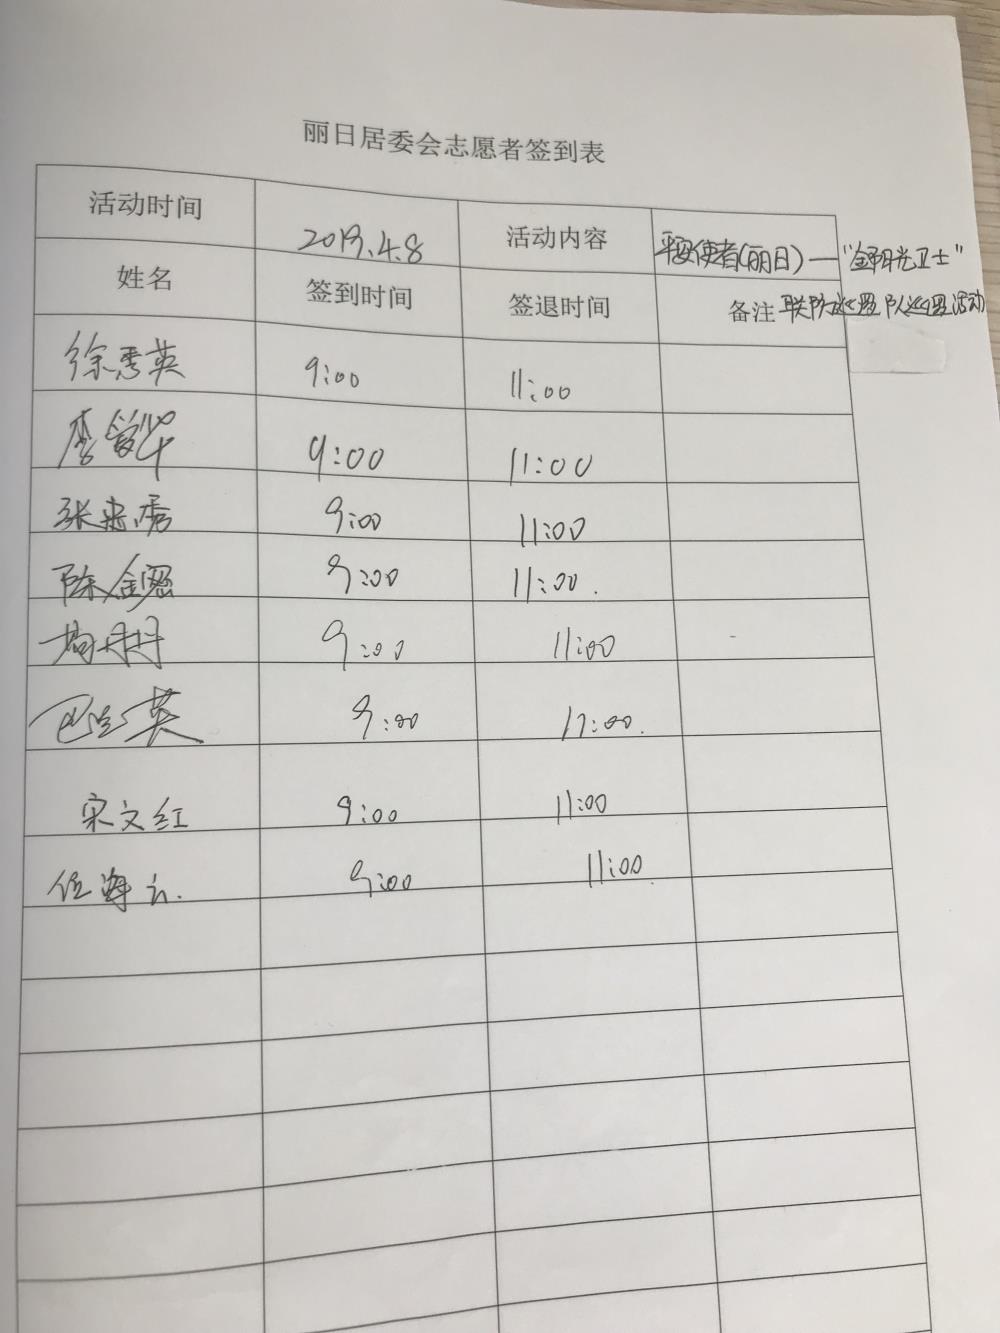 丽日居委会志愿者签到表
活动时间 2019.4.8 活动内容 平安使者(丽日)—"金阳光卫士"
姓名 签到时间 签退时间 备注 联防巡逻队巡逻活动
徐秀英 9:00 11:00
李 华 9:00 11:00
张来秀 9:00 11:00
陈金 9:00 11:00.
丹丹 9:00 11:00
巴 英 9:00 11:00.
宋文红 9:00 11:00
任海 9:00 11:00.